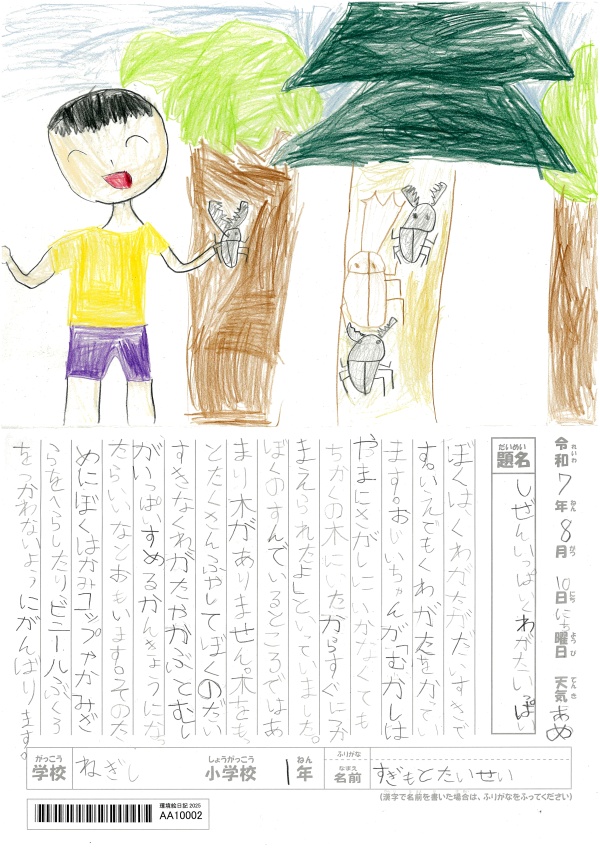 令和7年8月10日にち曜日 天気あめ
れいわ ねん がつ にち ようび てんき
だいめい
題名 しぜんいっぱいくわがたいっぱい
ぼくはくわがたがだいすきで
す。いえでもくわがたをかってい
ます。おじいちゃんが「むかしは
やまにさがしにいかなくても
ちかくの木にいたからすぐにつか
まえられたよ」といっていました。
ぼくのすんでいるところではあ
まり木がありません。木をもっ
とたくさんふやしてぼくのだい
すきなくわがたやかぶとむし
がいっぱいすめるかんきょうになっ
たらいいなとおもいます。そのた
めにぼくはかみコップやかみざ
らをへらしたり、ビニールぶくろ
をつかわないようにがんばります。
がっこう しょうがっこう ねん ふりがな なまえ
学校 ねぎし 小学校 1年 名前 すぎもとたいせい
(漢字で名前を書いた場合は、ふりがなをふってください)
環境絵日記 2025
AA10002